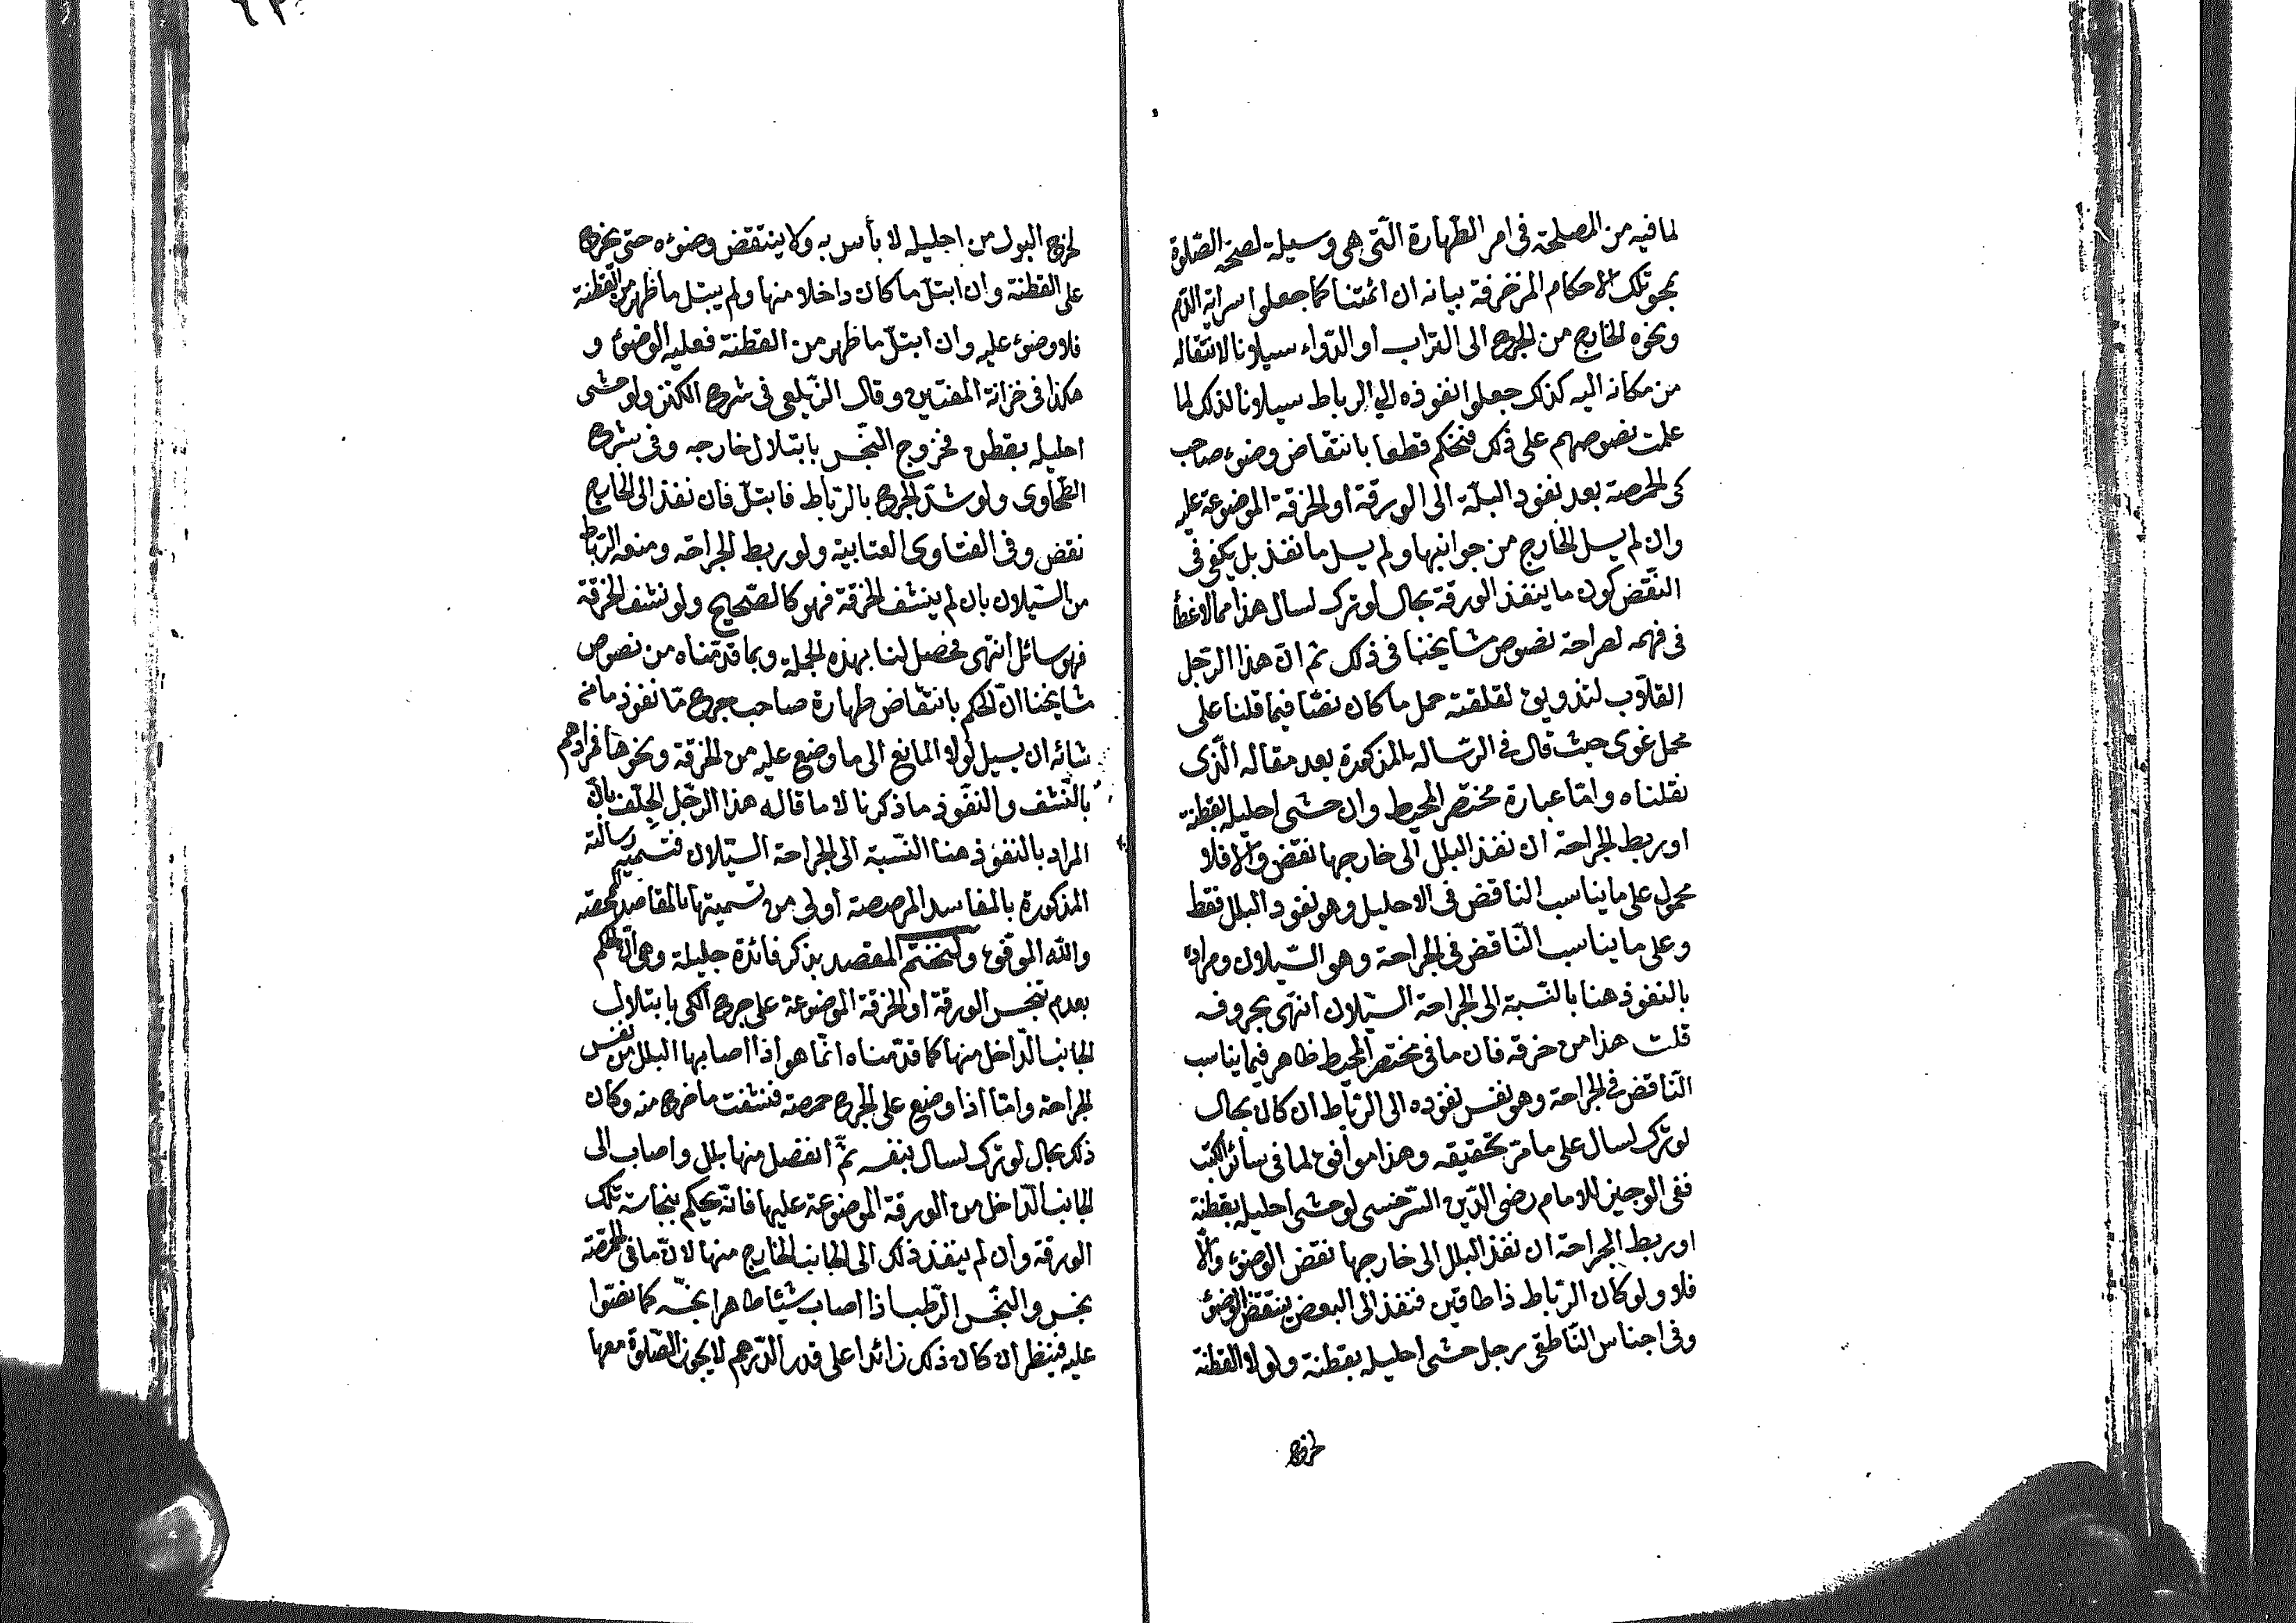 لما فيه من المصلحة فى امر الطّهارة الّتى هى وسيلة لصحّة الصّلوة
بمحو تلك الاحكام المزخرفة بيانه ان ائمتنا كما جعلوا سراية الدّم
ونحوه الخارج من الجرح الى التراب او الدّواء سيلانا لانتقاله
من مكانه اليه كذلك جعلوا نفوذه الى الرباط سيلانا لذلك لما
علمت نصوصهم على ذلك فنحكم قطعا بانتقاض وضوء صاحب
كى الحمصة بعد نفوذ البلّة الى الورقة او الخرقة الموضوعة عليه
وان لم يسل الخارج من جوانبها ولم يسل ما نفذ بل يكفى فى
النّقض كون ما ينفذ الورقة بحال لو ترك لسال هذا مما لا خطأ
فى فهمه لصراحة نصوص مشايخنا فى ذلك ثم انّ هذا الرّجل
القلاّب لتذويق لقلقته حمل ما كان نصّا فيما قلنا على
محمل غوى حيث قال فى الرّسالة المذكورة بعد مقاله الّذى
نقلناه وامّا عبارة مختصر المحيط وان حشى احليله بقطنة
او ربط الجراحة ان نفذ البلل الى خارجها نقض والاّ فلا
محمول على ما يناسب الناقض فى الاحليل وهو نفوذ البلل فقط
وعلى ما يناسب النّاقض فى الجراحة وهو السّيلان ومراده
بالنفوذ هنا بالنّسبة الى الجراحة السّيلان انتهى بحروفه
قلت هذا من خرقه فان ما فى مختصر المحيط ظاهر فيما يناسب
النّاقض فى الجراحة وهو نفس نفوذه الى الرّباط ان كان بحال
لو ترك لسال على ما مرّ تحقيقه وهذا موافق لما فى سائر الكتب
ففى الوجيز للامام رضى الدّين السّرخسى لو حشى احليله بقطنة
او ربط الجراحة ان نفذ البلل الى خارجها نقض الوضوء والاّ
فلا ولو كان الرّباط ذا طاقين فنفذ الى البعض ينتقض الوضوء
وفى اجناس النّاطفى رجل حشى احليله بقطنة ولولا القطنة
لخرج
لخرج البول من احليله لا بأس به ولا ينتقض وضوءه حتى يخرج
على القطنة وان ابتلّ ما كان داخلا منها ولم يبتل ما ظهر من القطنة
فلا وضوء عليه وان ابتلّ ما ظهر من القطنة فعليه الوضوء و
هكذا فى خزانة المفتين وقال الزّيلعى فى شرح الكنز ولو حشى
احليله بقطن فخروج النّجس بابتلال خارجه وفى شرح
الطّحاوى ولو شدّ الجرح بالرّباط فابتلّ فان نفذ الى الخارج
نقض وفى الفتاوى العتابية ولو ربط الجراحة ومنعه الرّباط
من السّيلان بان لم ينشف الخرقة فهو كالصّحيح ولو نشف الخرقة
فهو سائل انتهى فحصل لنا بهذه الجملة وبما قدّمناه من نصوص
مشايخنا انّ الحكم بانتقاض طهارة صاحب جرح مّا نفوذ ما من
شانه ان يسيل لولا المانع الى ما وضع عليه من الخرقة ونحوها فمرادهم
بالنّشف والنّفوذ ما ذكرنا لا ما قاله هذا الرّجل الجلف بانّ
المراد بالنفوذ هنا النّسبة الى الجراحة السّيلان فتسمية رسالته
المذكورة بالمفاسد المرصصة أولى من تسميتها بالمقاصد الممحصة
والله الموفّق ولنختتم المقصد بذكر فائدة جليلة وهى انّ الحكم
بعدم تنجس الورقة او الخرقة الموضوعة على جرح الكى بابتلال
الجانب الدّاخل منها كما قدّمناه انّما هو اذا اصابها البلل من نفس
الجراحة وامّا اذا وضع على الجرح حمصة فنشفت ما خرج منه وكان
ذلك بحال لو ترك لسال بنفسه ثمّ انفصل منها بلل واصاب الى
الجانب الدّاخل من الورقة الموضوعة عليها فانّه يحكم بنجاسة تلك
الورقة وان لم ينفذ ذلك الى الجانب الخارج منها لانّ ما فى الحمّصة
نجس والنّجس الرّطب اذا اصاب شيئا طاهرا نجّسه كما نصّوا
عليه فينظر ان كان ذلك زائدا على قدر الدّرهم لا يجوز الصّلوة معها